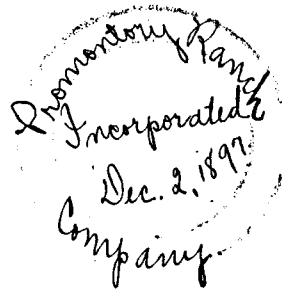 Promontory Ranch
Incorporated
Dec. 2, 1897
Company.